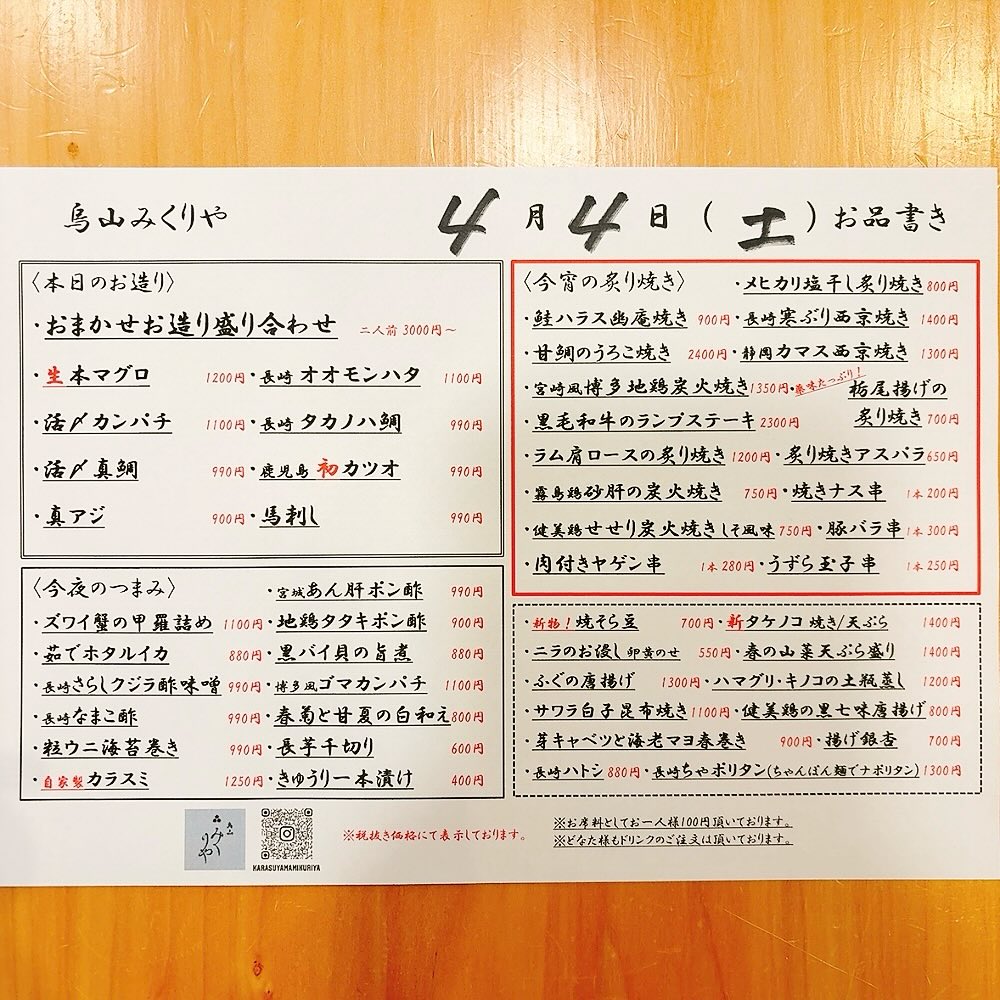 烏山みくりや 4月4日(土)お品書き
〈本日のお造り〉
・おまかせお造り盛り合わせ 二人前 3000円～
・生本マグロ 1200円 ・長崎 オオモンハタ 1100円
・活〆カンパチ 1100円 ・長崎 タカノハ鯛 990円
・活〆真鯛 990円 ・鹿児島 初カツオ 990円
・真アジ 900円 ・馬刺し 990円
〈今夜のつまみ〉 ・宮城あん肝ポン酢 990円
・ズワイ蟹の甲羅詰め 1100円 ・地鶏タタキポン酢 900円
・茹でホタルイカ 880円 ・黒バイ貝の旨煮 880円
・長崎さらしクジラ酢味噌 990円 ・博多風ゴマカンパチ 1100円
・長崎なまこ酢 990円 ・春菊と甘夏の白和え 800円
・粒ウニ海苔巻き 990円 ・長芋千切り 600円
・自家製カラスミ 1250円 ・きゅうり一本漬け 400円
〈今宵の炙り焼き〉 ・メヒカリ塩干し炙り焼き 800円
・鮭ハラス幽庵焼き 900円 ・長崎寒ぶり西京焼き 1400円
・甘鯛のうろこ焼き 2400円 ・静岡カマス西京焼き 1300円
・宮崎風博多地鶏炭火焼き 1350円 ・薬味たっぷり! 栃尾揚げの
・黒毛和牛のランプステーキ 2300円 炙り焼き 700円
・ラム肩ロースの炙り焼き 1200円 ・炙り焼きアスパラ 650円
・霧島鶏砂肝の炭火焼き 750円 ・焼きナス串 1本 200円
・健美鶏せせり炭火焼きしそ風味 750円 ・豚バラ串 1本 300円
・肉付きヤゲン串 1本 280円 ・うずら玉子串 1本 250円
・新物!焼そら豆 700円 ・新タケノコ 焼き/天ぷら 1400円
・ニラのお浸し 卵黄のせ 550円 ・春の山菜天ぷら盛り 1400円
・ふぐの唐揚げ 1300円 ・ハマグリ・キノコの土瓶蒸し 1200円
・サワラ白子昆布焼き 1100円 ・健美鶏の黒七味唐揚げ 800円
・芽キャベツと海老マヨ春巻き 900円 ・揚げ銀杏 700円
・長崎ハトシ 880円 ・長崎ちゃポリタン(ちゃんぽん麺でナポリタン) 1300円
みくりや
KARASUYAMAMIKURIYA
※税抜き価格にて表示しております。
※お席料としてお一人様100円頂いております。
※どなた様もドリンクのご注文は頂いております。